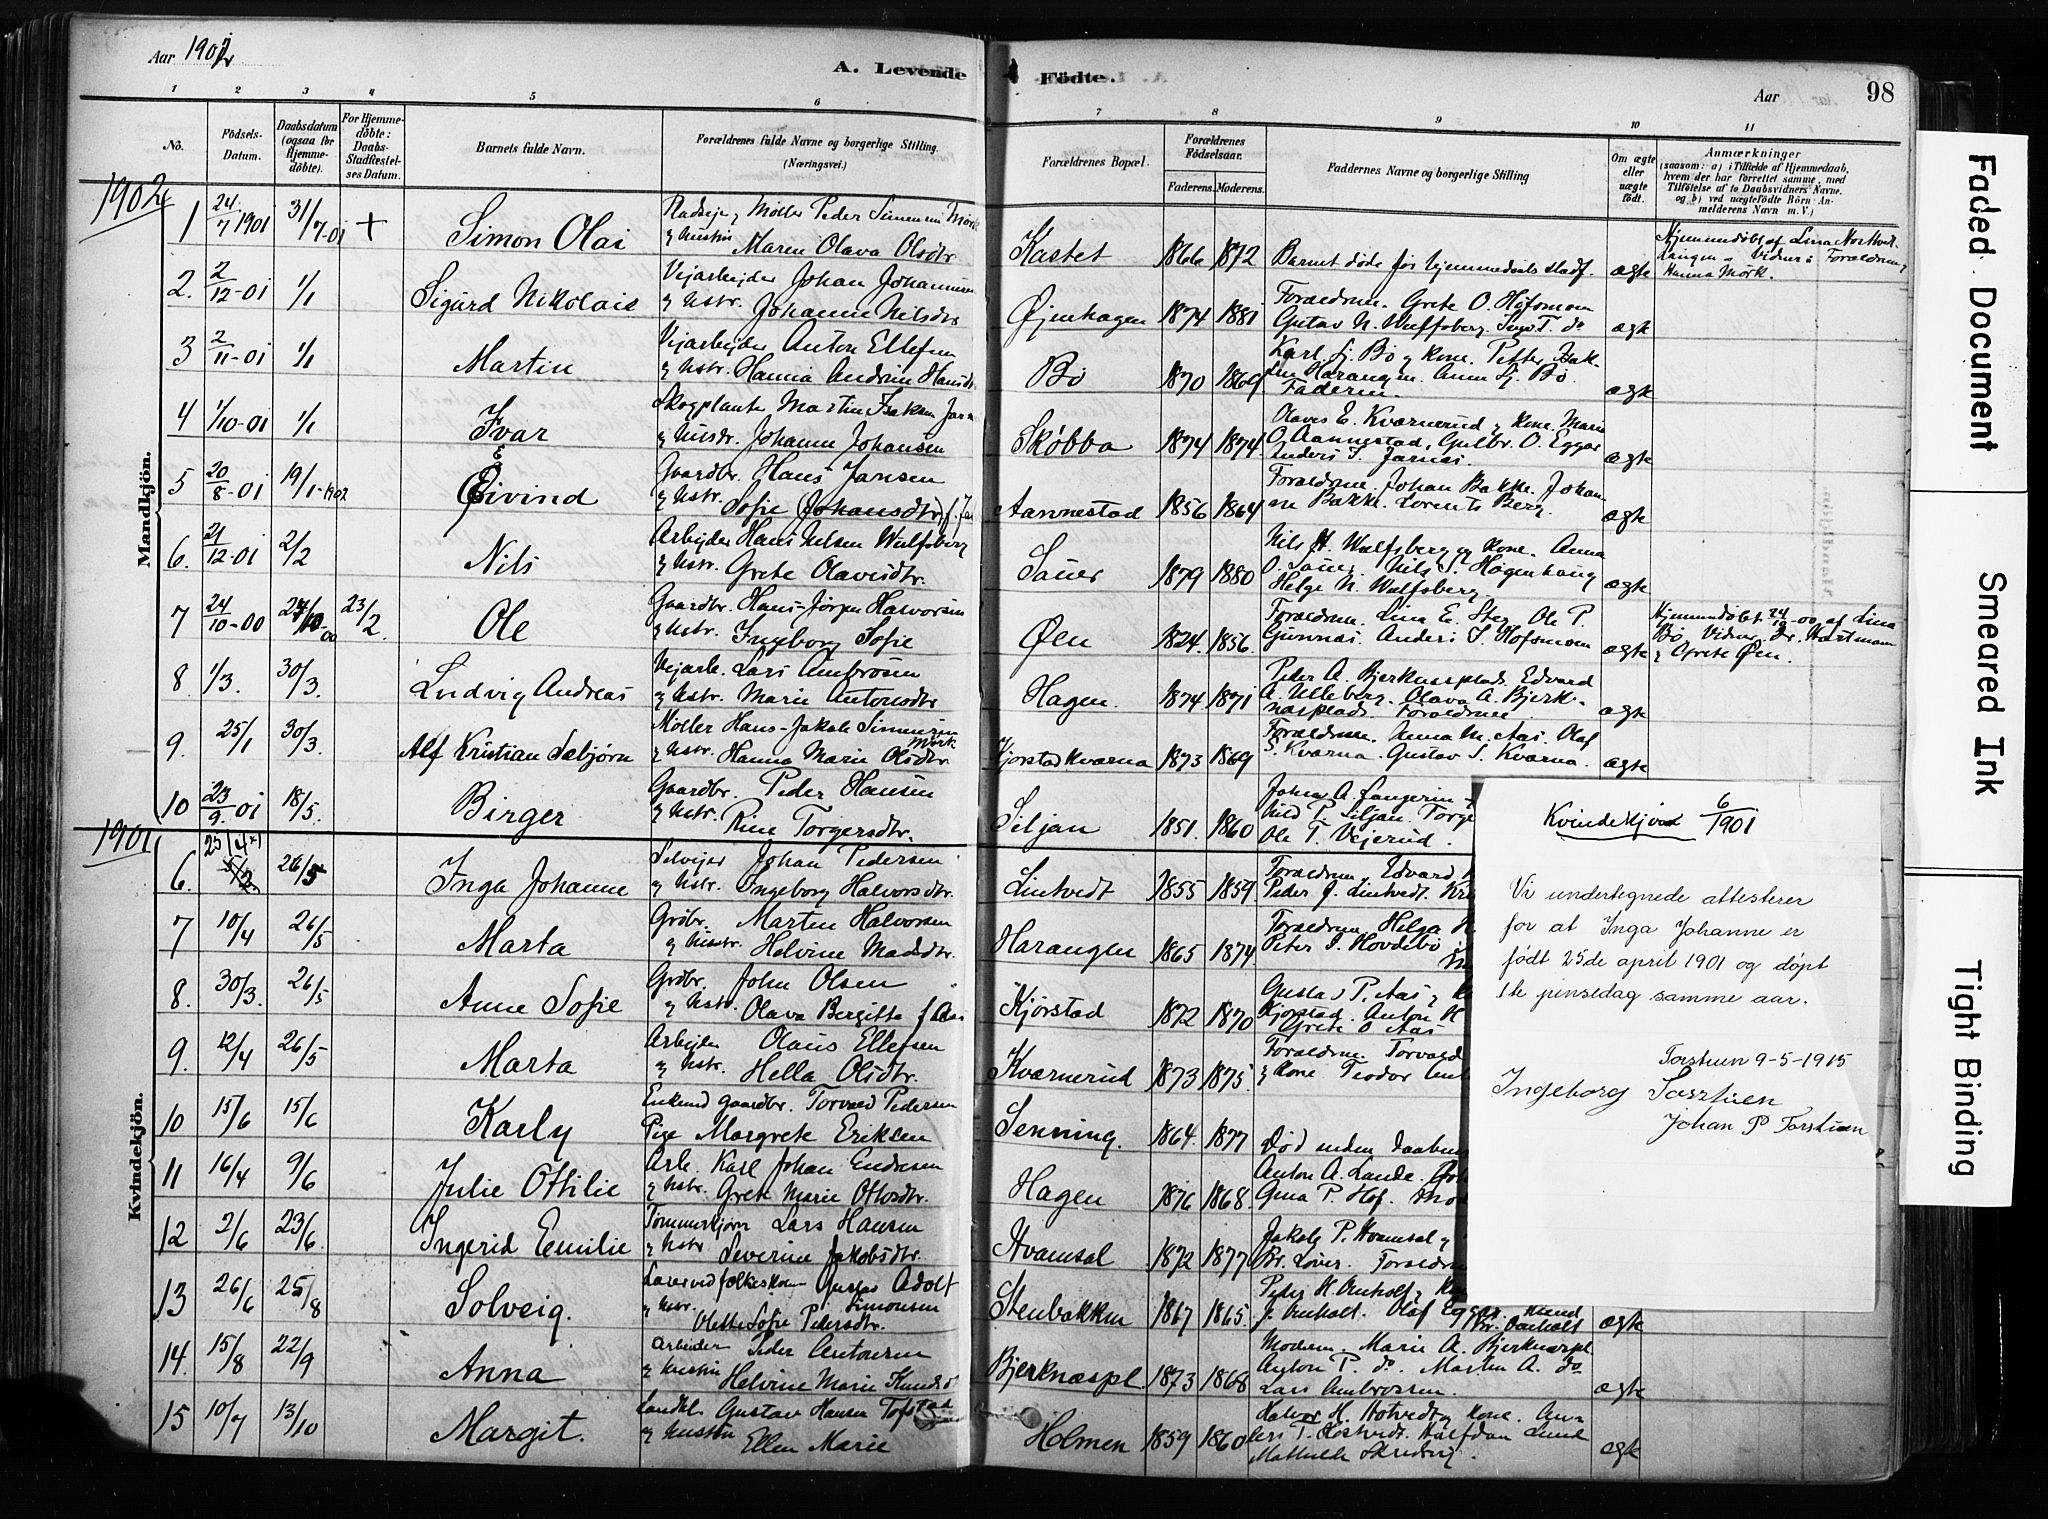 Aar 1902
A. Levende Födte.
Aar
98
1 2 3 4 5 6 7 8 9 10 11
No.
Födsels-Datum.
Daabsdatum (ogsaa for Hjemme-döbte).
For Hjemme-döbte: Daabs-Stadfæstel-ses Datum.
Barnets fulde Navn.
Forældrenes fulde Navne og borgerlige Stilling. (Næringsvei.)
Forældrenes Bopæl.
Forældrenes Födselsaar.
Faderens. Moderens.
Faddernes Navne og borgerlige Stilling
Om ægte eller uægte födt.
Anmærkninger
(saasom: a) i Tilfælde af Hjemmedaab, hvem der har forrettet samme, med Tilföielse af to Daabsvidners Navne, og b) ved uægtefödte Börn An-melderens Navn m. V.)
1902
Mandkjön.
1 24/7 1901 31/7-01 + Simon Olai
og Hustru Maren Olava Olsdtr
Kastet 1866 1872 Barnet døde før Hjemmedaabs stadf. ægte
Hanna Mork.
2. 2/12-01 1/1 Sigurd Nikolais Veiarbeider Johan Johannesen
og Hstr. Johanne Nilsdtr
Øjenhagen 1874 1881 Forældrene. Grete O. Hofsmoen
Gustav N. Wulfsberg. Inga T. do ægte
3 2/11-01 1/1 Martin Veiarbeider Anton Ellefsen
og Hstr. Hanna Andrine Hansdtr
Bö 1870 1869
Faderen. ægte
4 1/10-01 1/1 Ivar
Johanne Johansen
Skøbba 1874 1874 Olaves E. Kværnerud og Kone. Maria
O. Aannestad, Gulbr. O. Eggar
Anders I. Jarnæs. ægte
5 20/8-01 19/1-1902 Eivind Gaardbr. Hans Jansen
og Hstr. Sofie Johansdtr
Aannestad 1856 1864 Forældrene. Johan Bakke. Johan-
ne Bakke. Lorents Berg. ægte
6. 21/12-01 2/2 Nils Arbejder Hans Nilsen Wulfsberg
og Hstr. Grete Olavesdtr.
Sauer 1879 1880 Nils H. Wulfsberg og Kone. Anna
O. Sauer Nils S. Høgenhaug
Helge N. Wulfsberg. ægte
7 24/10-00 24/10 00 23/2. Ole Gaardbr. Hans-Jørgen Halvorsen
og Hstr. Ingeborg Sofie
Øen 1824. 1856. Forældrene. Lina E. Ole P.
Gurnnæs. Anders I. Hofsmoen ægte
Hjemmedøbt 24/10-00 af Lina
Bö Vidner. Dr. Hartmann
og Grete Øen.
8. 1/3. 30/3. Ludvig Andreas Vejarb. Lars Ambrosen
og Hstr. Marie Antonsdtr
Hagen. 1874 1871 Peder A. Bjerknæsplads. Edvard
A. Ulleberg. Olava A. Bjerk-
næsplads. Forældrene. ægte
9. 25/1 30/3. Alf Kristian Sebjørn Møller Hans-Jakob Simensen
Mørk
og Hstr. Hanna Marie Olsdtr.
Kjorstadkværna 1873 1869 Forældrene. Anna M. Aas. Olaf
S. Kværna. Gustav S. Kværna. ægte
10 23/9. 01 18/5. Birger Gaardbr. Peder Hansen
og Hstr. Rine Torgersdtr.
Siljan 1851. 1860
P. Siljan. Torge
Ole T. Vejerud.
1901
Kvindekjön.
6. 25/4 26/5 Inga Johanne Selvejer Johan Pedersen
og Hstr. Ingeborg Halvorsdtr.
Lintvedt 1855 1859 Forældrene. Edvard
Peder J. Lintvedt.
7 10/4 26/5 Marta Grdbr. Marten Halvorsen
og Hustr. Helvine Madsdtr.
Harangen 1865 1874 Forældrene Helga
Peter J. Hovdebö
8. 30/3. 26/5 Anne Sofie Grdbr. John Olsen
og Hstr. Olava Bergitte f. Aas
Kjørstad 1872 1870 Gustav P. Aas og
Kjørstad. Anton H
Grete O Aas
9. 12/4 26/5 Marta Arbejder Olaus Ellefsen
og Hstr. Hella Olsdtr.
Kværnerud 1873 1875. Forældrene. Torvald
og Kone Teodor
10 15/6 15/6 Karly Enkemd Gaardbr. Torvald Pedersen
Pige Margrete Eriksen
Senning. 1864. 1877 Død uden Daaben
11 16/4 9/6 Julie Ottilie Arb. Karl Johan Endresen
og Hstr. Grete Marie Ottosdtr.
Hagen 1876 1868. Anton A. Lande.
Gina P. Hof.
12 2/6 23/6. Ingerid Emilie Lars Hansen
og Hstr Severine Jakobsdtr.
Hvamsal 1872 1877 Jakob P. Hvamsal og
Br. Löver. Forældrene
13 26/6 25/8 Solveig. Gustav Adolf
Simonsen
Olette Sofie Pedersdtr.
Stenbakken 1867 1865. Peder H. Omholt og
J. Omholt. Olaf Eggar Knud
Br. Omholt ægte
14. 15/8 22/9 Anna Arbeider Peder Antonsen
og Hustru Helvine Marie Knudsd
Bjerknæspl. 1873 1868 Moderen. Marie A. Bjerknæspl
Anton P. do. Martin A. do
Lars Ambrossen. ægte
15 10/7 13/10 Margit. Landh. Gustav Hansen
og Hustru Ellen Marie
Holmen 1859 1860 Halvor H. Hotvedt og Kone. An-
ders T. Hostvedt. Halfdan Lund
Mathilde Skredvig. ægte
Kvindekjön 6/1901
Vi undertegnede attesterer
for at Inga Johanne er
født 25de april 1901 og døpt
1te pinsedag samme aar.
Torstuen 9-5-1915
Ingeborg Torstuen
Johan P Torstuen
Faded Document
Smeared Ink
Tight Binding